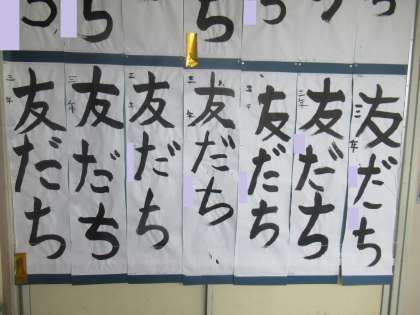 友だち
三年
友だち
三年
友だち
三年
友だち
三年
友だち
三年
友だち
三年
友だち
三年
ち
ち